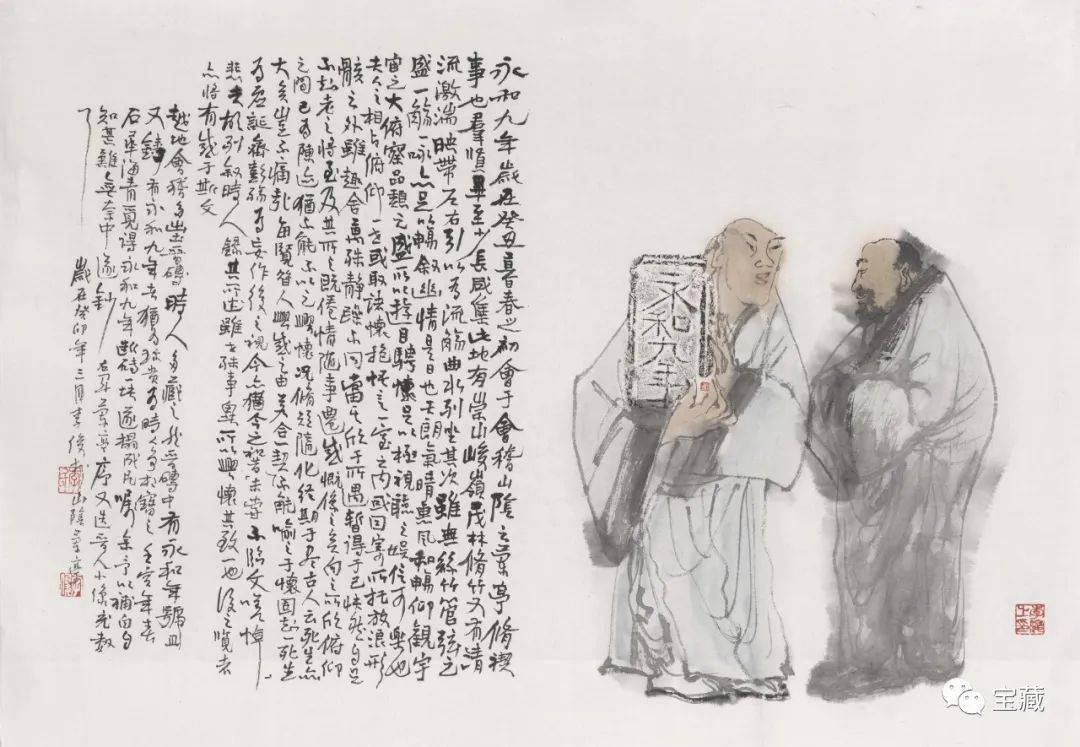 永和九年歲在癸丑暮春之初會于會稽山陰之蘭亭脩禊
事也羣賢畢至少長咸集此地有崇山峻嶺茂林脩竹又有清
流激湍映帶左右引以為流觴曲水列坐其次雖無絲竹管弦之
盛一觴一咏亦足以暢叙幽情是日也天朗氣晴惠風和暢仰觀宇
宙之大俯察品類之盛所以遊目騁懷足以極視聽之娱信可樂也
夫人之相與俯仰一世或取諸懷抱悟言一室之內或因寄所托放浪形
骸之外雖趣舍萬殊靜躁不同當其欣于所遇暫得于己快然自足
不知老之將至及其所之既倦情隨事遷感慨係之矣向之所欣俯仰
之間已為陳迹猶不能不以之興懷況脩短隨化終期于盡古人云死生亦
大矣豈不痛哉每覽昔人興感之由若合一契不能喻之于懷固知一死生
為虛誕齊彭殤為妄作後之視今亦猶今之視昔未嘗不臨文嗟悼
悲夫故列叙時人錄其所述雖世殊事異所以興懷其致一也後之覽者
亦將有感于斯文
越地會稽多出晉磚時人多藏之然晉磚中有永和年號且
又鑄有永和九年者猶為珍貴為時人多求寶之壬寅年春
石渠海青覓得永和九年斷磚一塊遂搨成片囑余予以補白自
知甚難無奈中遂鈔右軍蘭亭序又造晉人小像充數
了
歲在癸卯年三月李俊山陰蘭亭
永和九年
宝藏